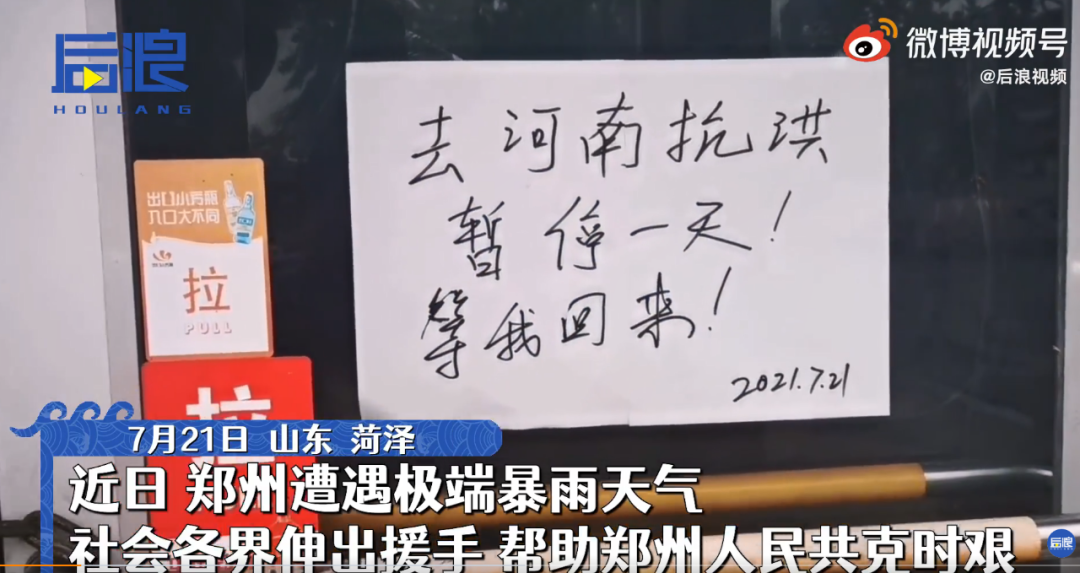 后浪
HOULANG
微博视频号
@后浪视频
去河南抗洪
暂停一天!
等我回来!
2021.7.21
出口小芳雨
入口大不同
拉
PULL
拉
7月21日 山东 菏泽
近日 郑州遭遇极端暴雨天气
社会各界伸出援手 帮助郑州人民共克时艰
后浪